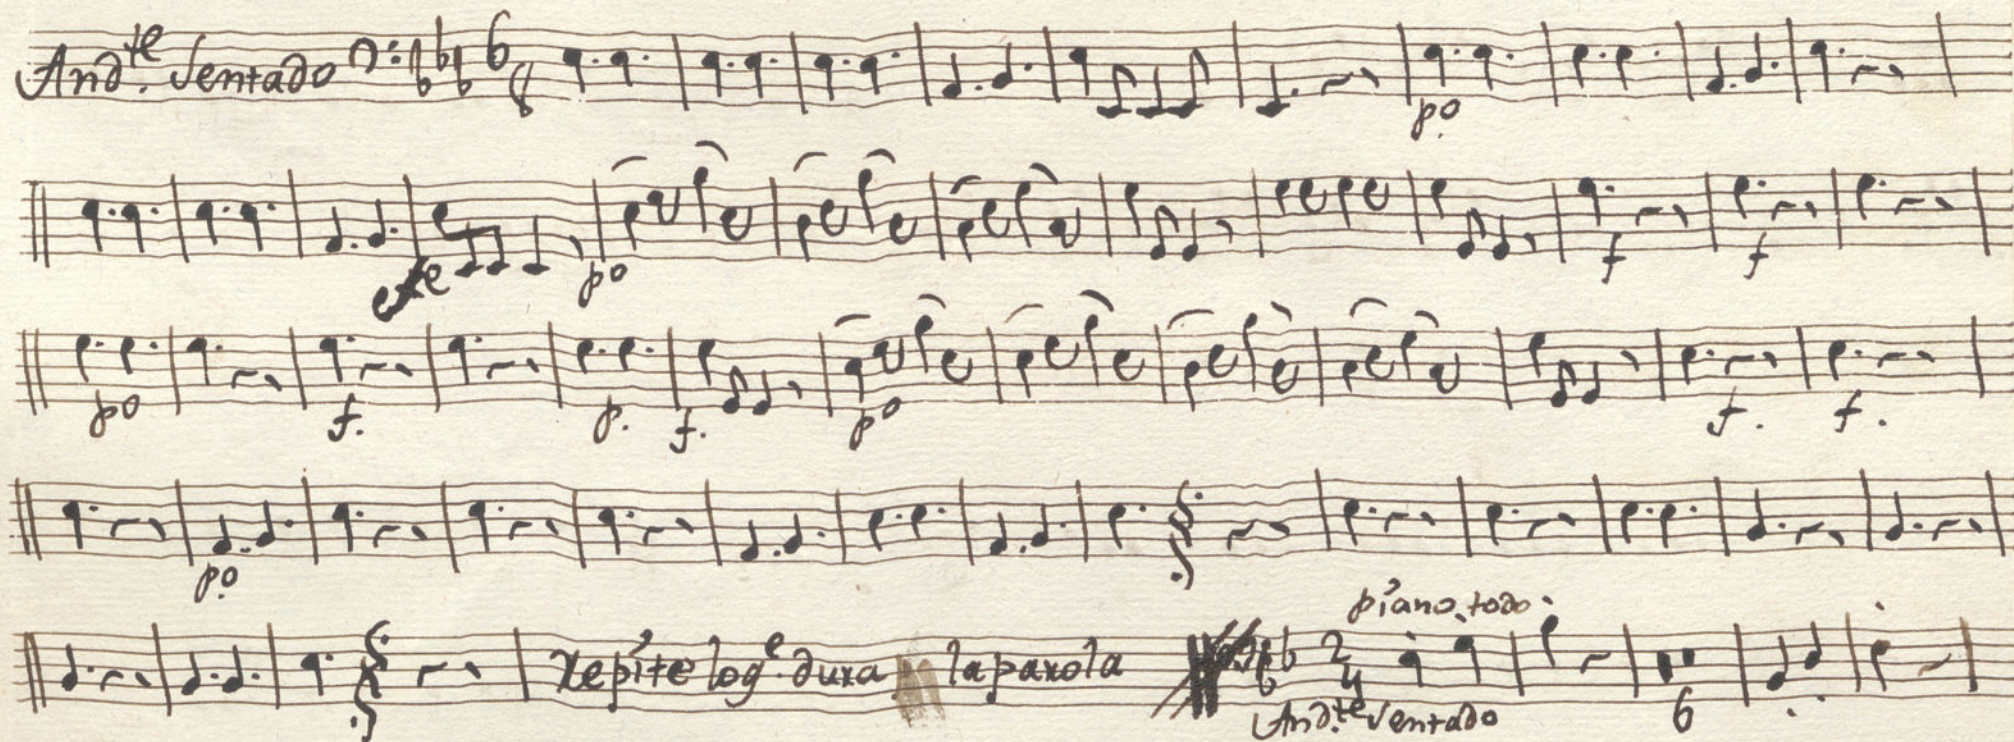 And.te Sentado 6 8
po
fe po f f
po f. p. f. po f. f.
po
piano todo
Repite log.e dura la parola 2 4
And.te Sentado 6